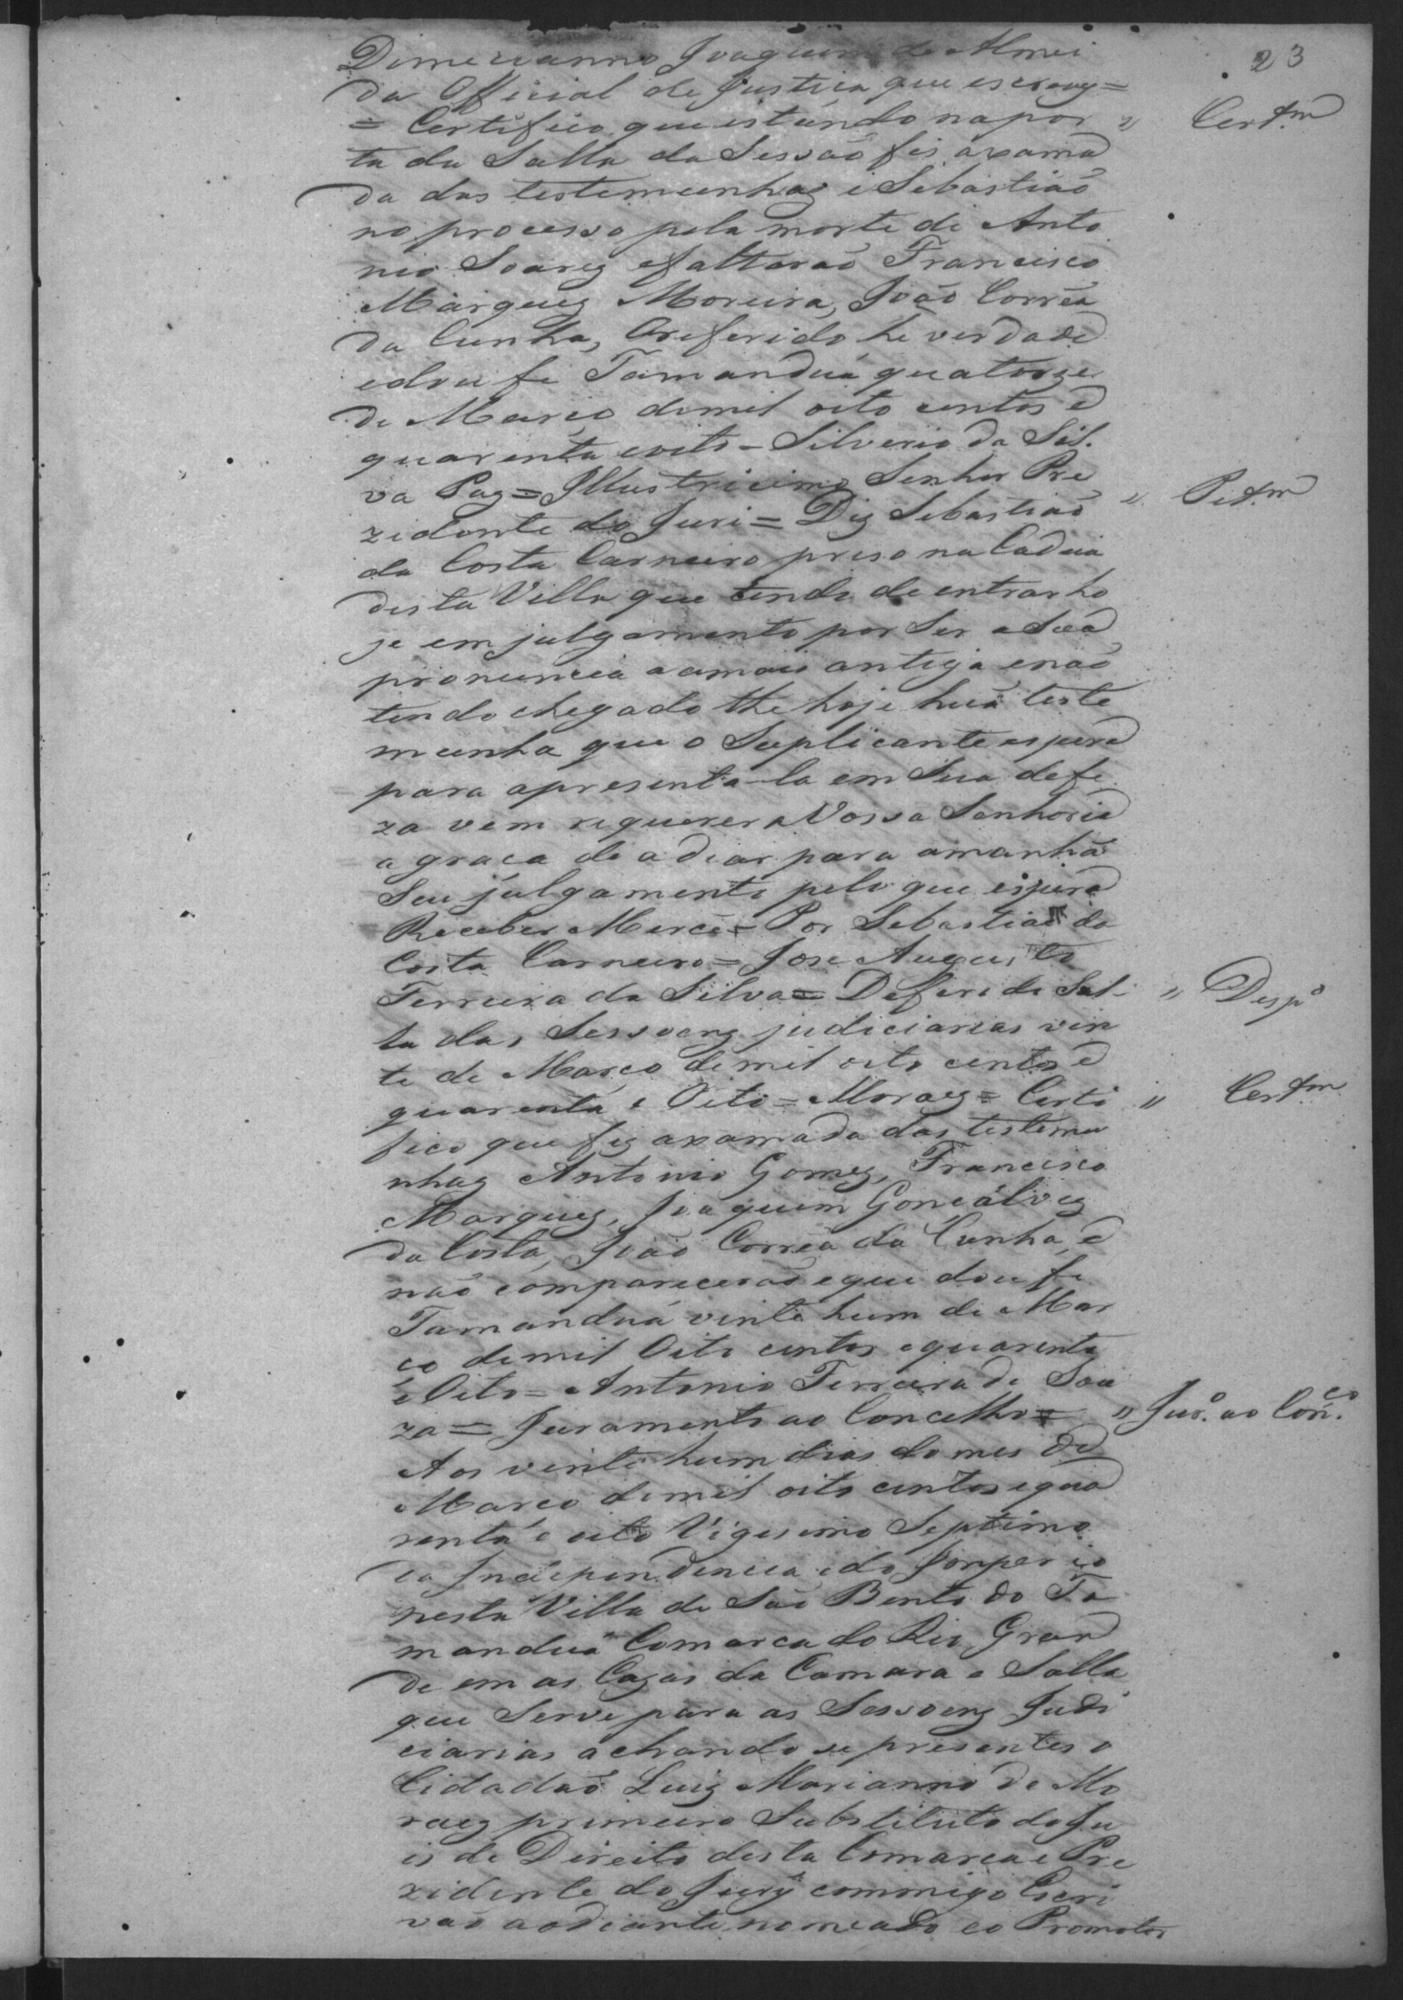 23
Dimerianno Joaquim de Almei
da Official de Justica que escrevy=
= Certifico que estando na por " Certam
ta da Salla da Sessão fis axama
da das testemunhas e Sebastião
no processo pela morte de Anto
nio Soares e faltarão Francisco
Marques Moreira, João Corrêa
da Cunha, O referido he verdade
e dou fe Tamanduá quatorze
de Março de mil oito centos e
quarenta e oito - Silverio da Sil-
va Paz = Illustricimo Senhor Pre " Petam
zidente do Juri = Diz Sebastião
da Costa Carneiro preso na Cadeia
desta Villa que tendo de entrar ho
je em julgamento por Ser a Sua
pronuncia a amais antiga e não
tendo chegado the hoje huã teste
munha que o Suplicante espera
para apresenta-la em Sua defe
za vem requerer a Vossa Senhoria
a graca de adiar para amanhã
Seu julgamento pelo que espera
Receber Mercê = Por Sebastião da
Costa Carneiro = Jose Augusto
Ferreira da Silva = Deferido Sal- " Despo
la das Sessoens judiciarias vin
te de Março de mil oito centos e
quarenta e Oito = Moraes = Certi " Certam
fico que fiz axamada das testemu
nhas Antonio Gomes, Francisco
Marques, Joaquim Gonçálves
da Costa, João Corrêa da Cunha, e
não comparecerão e que dou fe
Tamanduá vinte hum de Mar
ço de mil Oito centos e quarenta
e Oito = Antonio Ferreira de Sou
za = Juramento ao Concelho = " Juro. ao Conco.
Aos vinte hum dias do mes de
Março de mil oito centos e qua
renta e oito Vigesimo Septimo
da Independencia e do Imperio
nesta Villa de São Bento do Ta
manduá Comarca do Rio Gran
de em as Cazas da Camara e Salla
que Serve para as Sessoens Judi
ciarias achando se presentes o
Cidadão Luiz Marianno de Mo
raes primeiro Substituto do Ju
is de Direito desta Comarca e Pre
zidente do Jury commigo Escri
vão aodiante nomeado eo Promotor